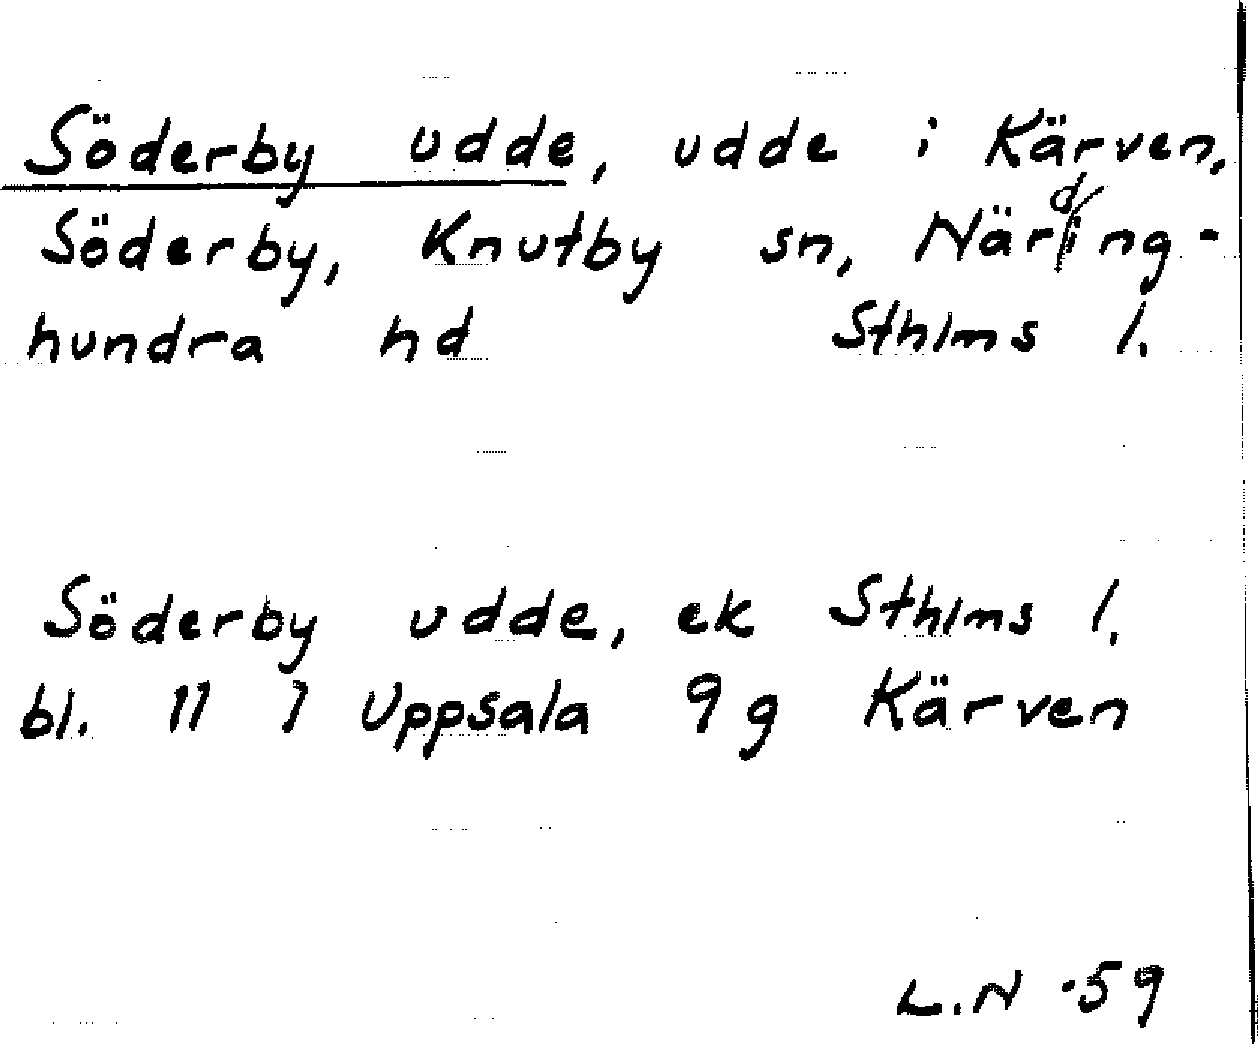 Söderby udde, udde i Kärven,
Söderby, Knutby sn, Närding-
hundra hd Sthlms l.
Söderby udde, ek Sthlms l.
bl. 11 I Uppsala 9g Kärven
L.N -59